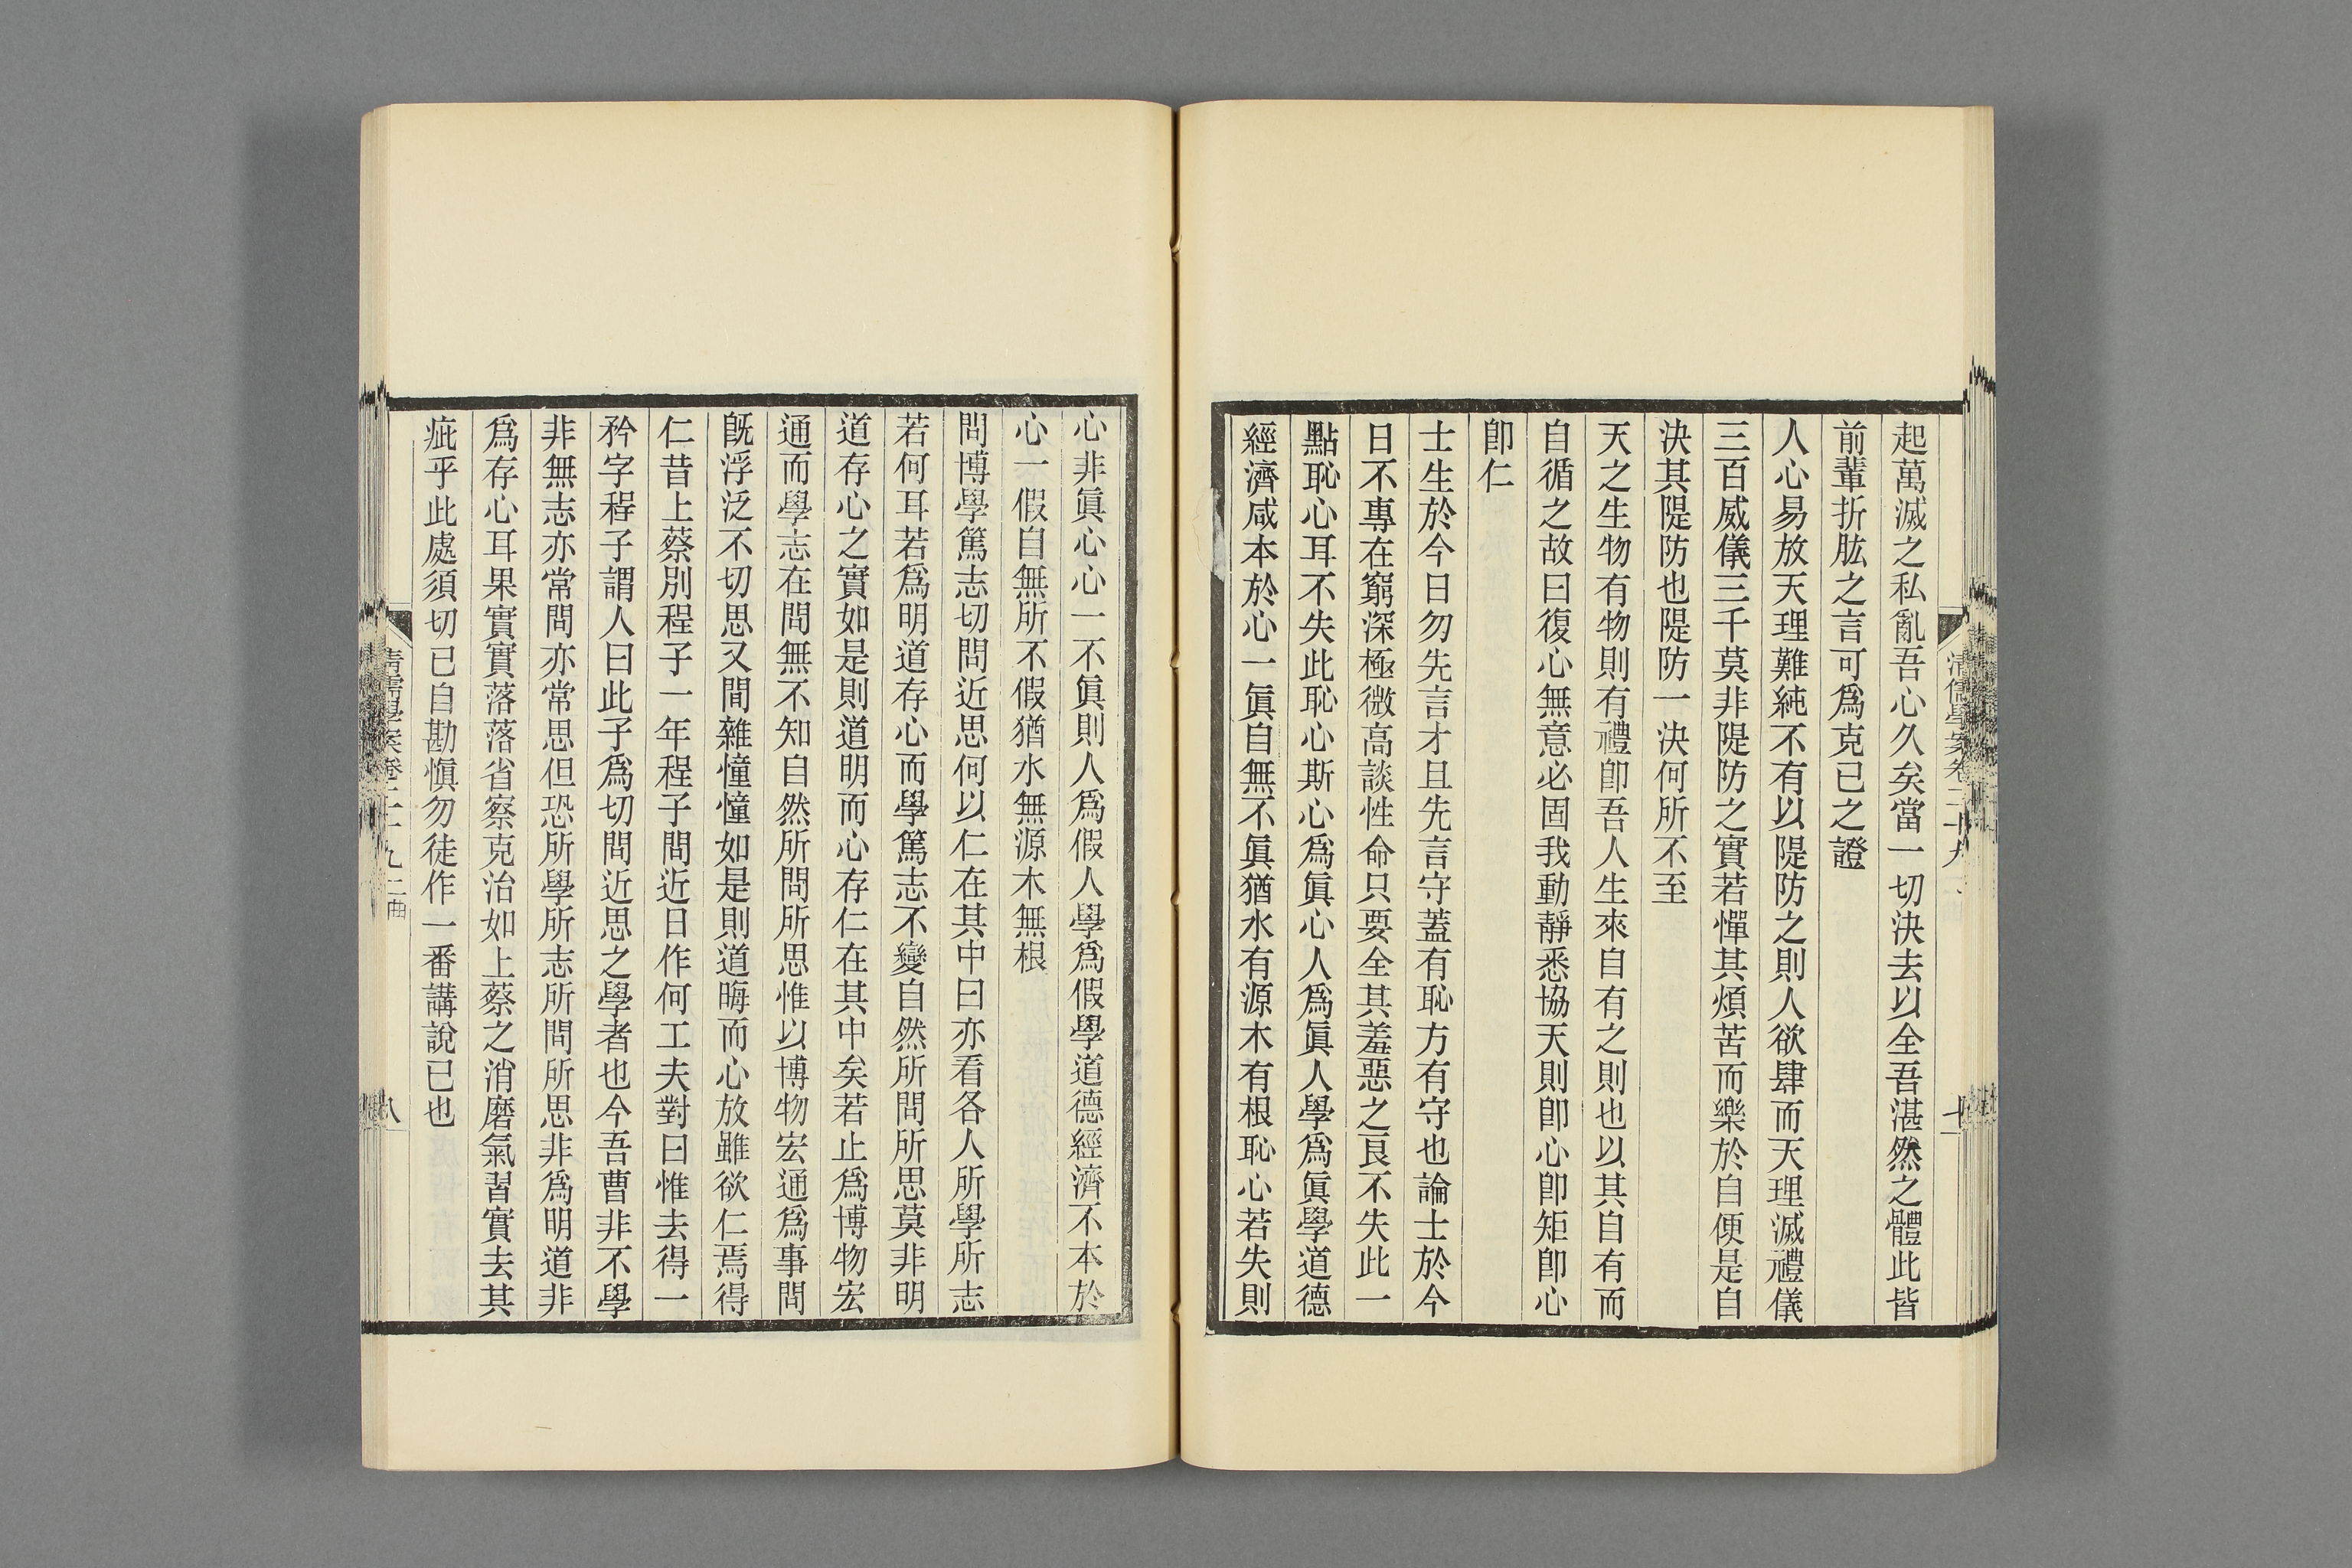 起萬滅之私亂吾心久矣當一切決去以全吾湛然之體此皆
前輩折肱之言可爲克己之證
人心易放天理難純不有以隄防之則人欲肆而天理滅禮儀
三百威儀三千莫非隄防之實若憚其煩苦而樂於自便是自
決其隄防也隄防一決何所不至
天之生物有物則有禮卽吾人生來自有之則也以其自有而
自循之故曰復心無意必固我動靜悉協天則卽心卽矩卽心
卽仁
士生於今日勿先言才且先言守蓋有恥方有守也論士於今
日不專在窮深極微高談性命只要全其羞惡之良不失此一
點恥心耳不失此恥心斯心爲眞心人爲眞人學爲眞學道德
經濟咸本於心一眞自無不眞猶水有源木有根恥心若失則
心非眞心心一不眞則人爲假人學爲假學道德經濟不本於
心一假自無所不假猶水無源木無根
問博學篤志切問近思何以仁在其中曰亦看各人所學所志
若何耳若爲明道存心而學篤志不變自然所問所思莫非明
道存心之實如是則道明而心存仁在其中矣若止爲博物宏
通而學志在問無不知自然所問所思惟以博物宏通爲事問
旣浮泛不切思又間雜憧憧如是則道晦而心放雖欲仁焉得
仁昔上蔡別程子一年程子問近日作何工夫對曰惟去得一
矜字程子謂人曰此子爲切問近思之學者也今吾曹非不學
非無志亦常問亦常思但恐所學所志所問所思非爲明道非
爲存心耳果實實落落省察克治如上蔡之消磨氣習實去其
疵乎此處須切己自勘愼勿徒作一番講說已也
清儒學案卷二十九 二曲
八